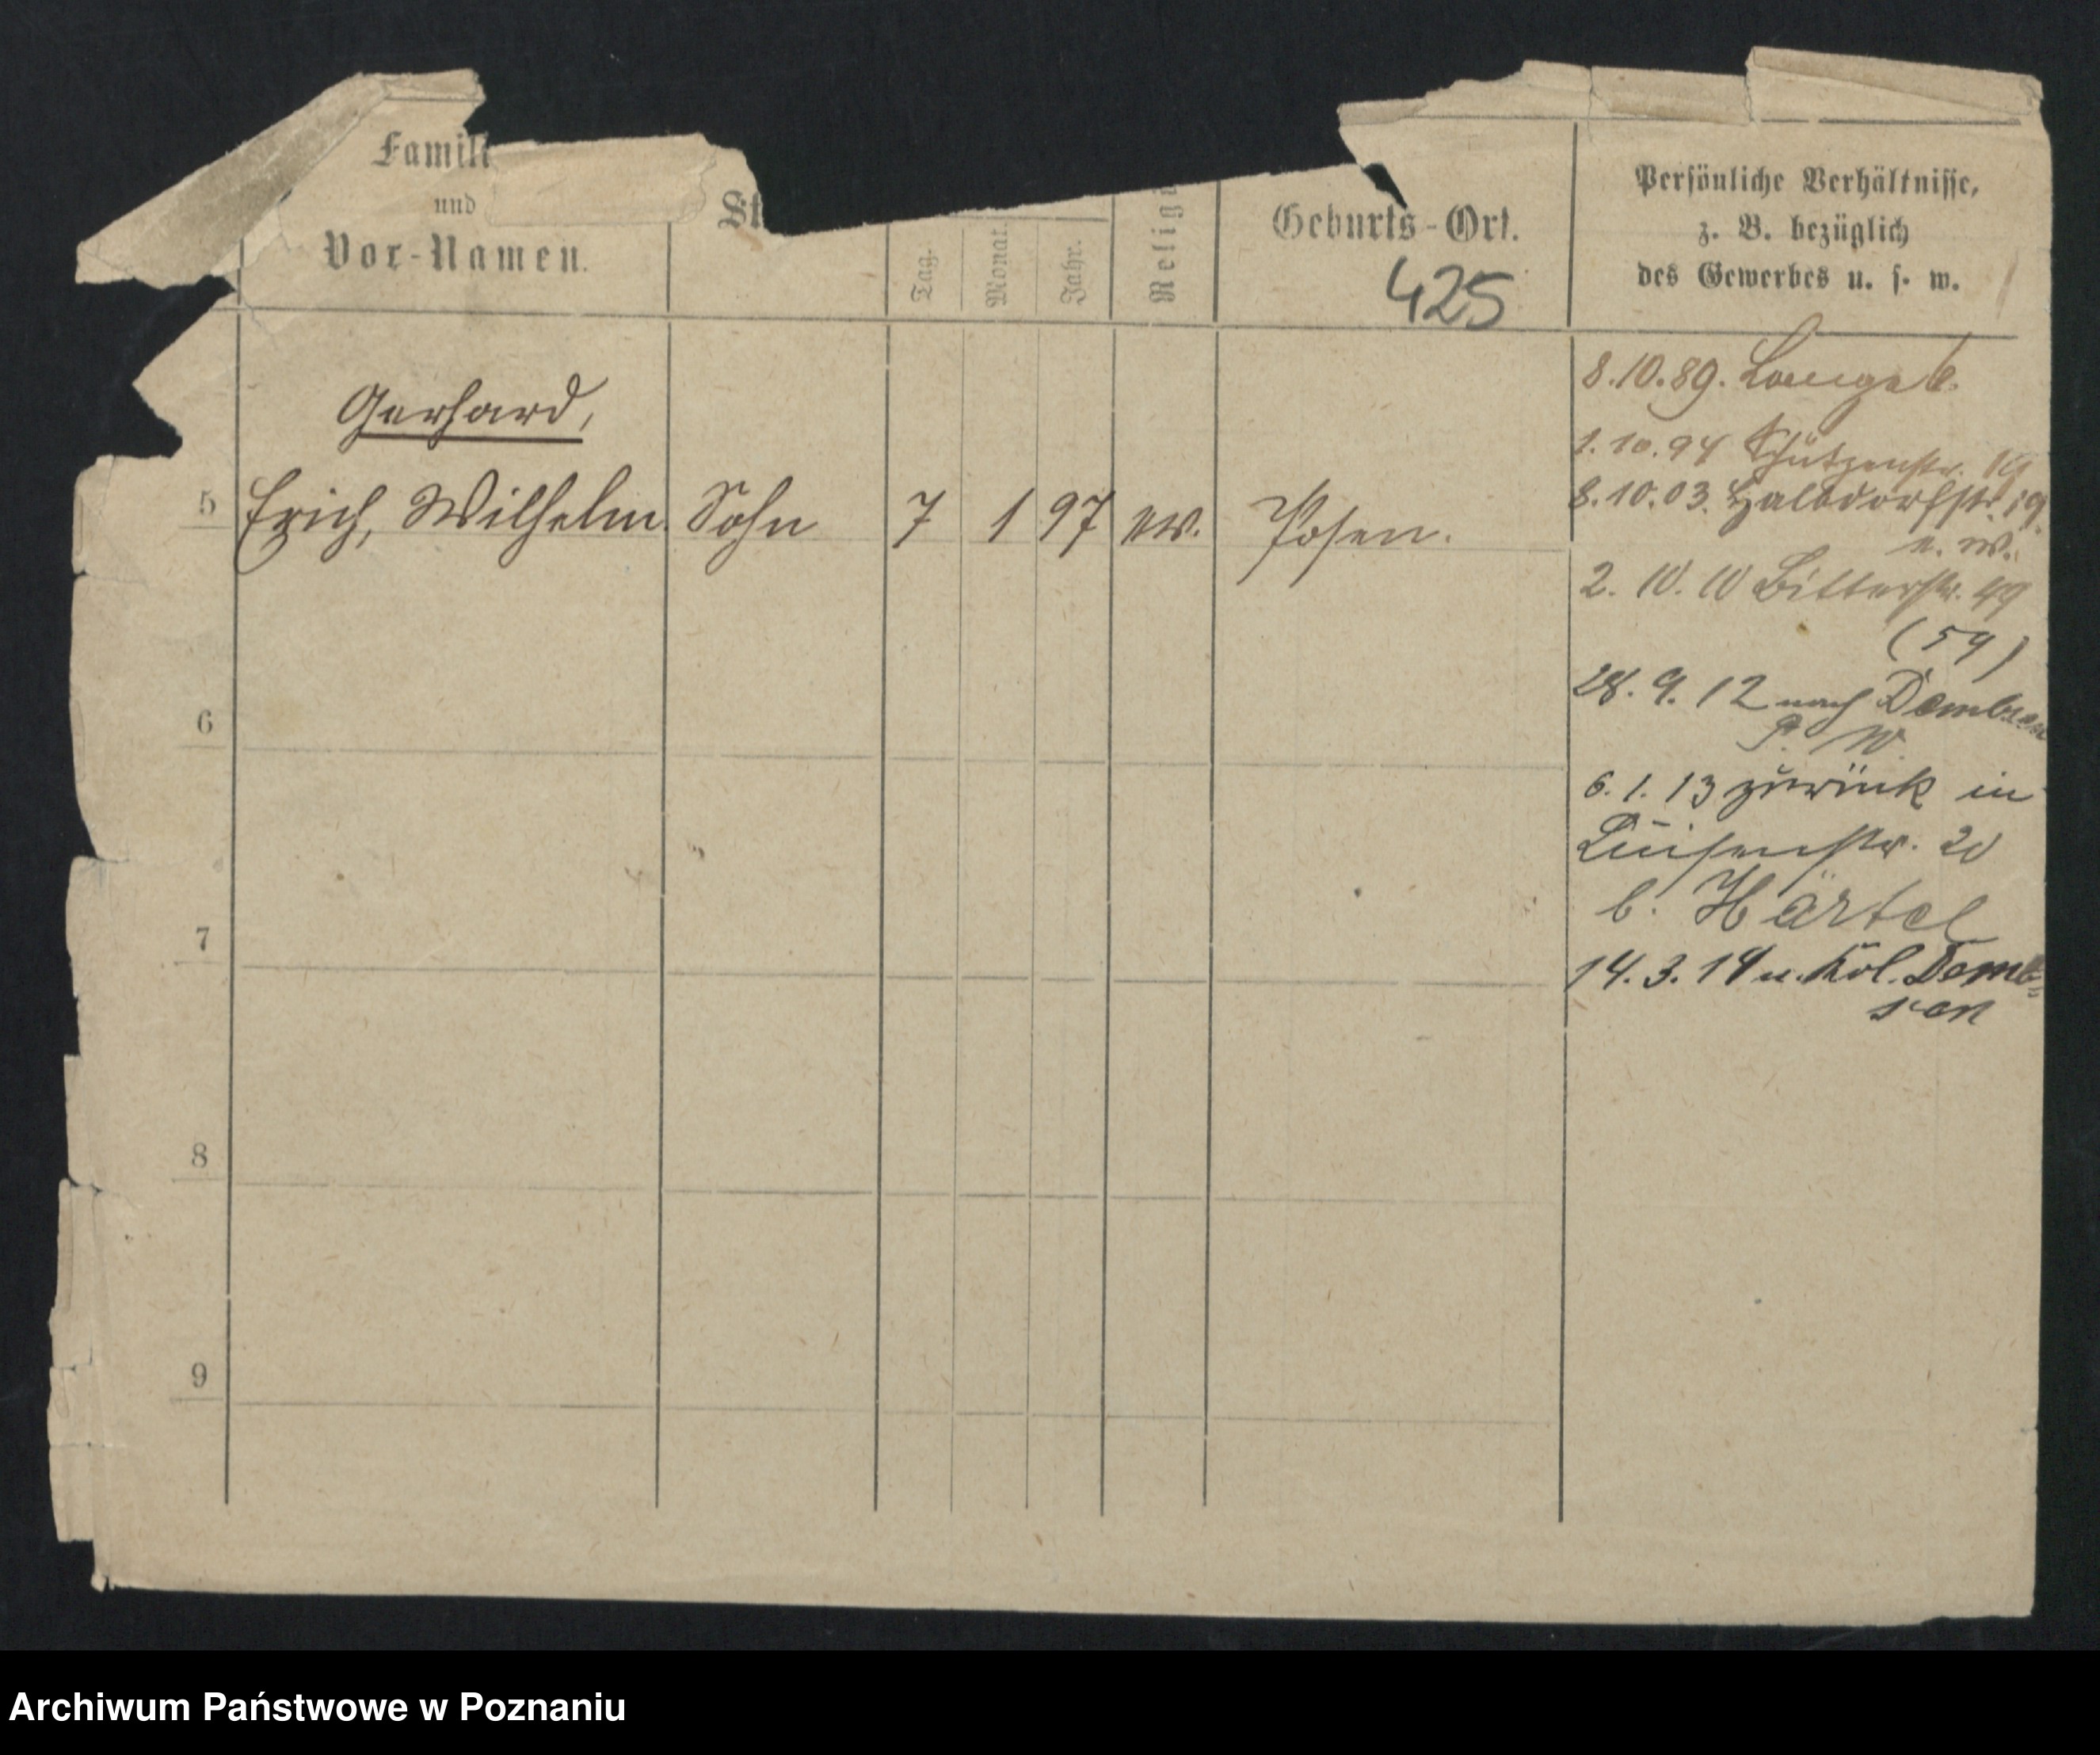 Famili
und
Vor-Namen.
St
Tag.
Monat.
Jahr.
Religi
Geburts-Ort.
425
Persönliche Verhältnisse,
z. B. bezüglich
des Gewerbes u. s. w.
Gerhard,
5 Erich, Wilhelm. Sohn 7 1 97 ev. Posen.
6
7
8
9
8.10.89. Langest.
1.10.94 Schützenstr. 19
8.10.03. Halbdorfstr. 19.
2. 10. 10 Bitterstr. 49
(59)
28. 9. 12 nach Dembsen
P. W
6. 1. 13 zurück in
Luisenstr. 20
b. Härtel
14. 3. 14 n. Kol. Demb=
sen
Archiwum Państwowe w Poznaniu